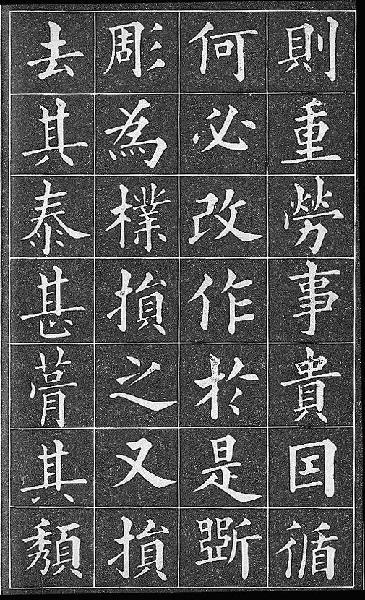 則重勞事貴囙循
何必改作於是斲
彫為樸損之又損
去其泰甚葺其頽